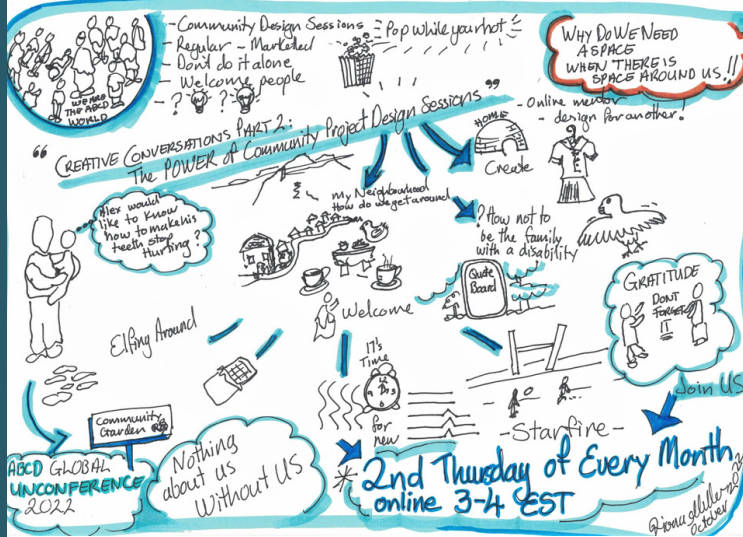 - Community Design Sessions
- Regular - Marketed
- Don't do it alone
- Welcome people
- ? ?
WE ARE
THE ABCD
WORLD
Pop while your hot
WHY DO WE NEED
A SPACE
WHEN THERE IS
SPACE AROUND US!!
"CREATIVE CONVERSATIONS PART 2:
The POWER of Community Project Design Sessions"
- Online mentor
- design for another!
HOME
Create
Alex would
like to know
how to make his
teeth stop
Hurting?
my Neighbourhood
How do we get around
? How not to
be the family
with a disability
Quote
Board
Welcome
GRATITUDE
DONT
FORGET
IT
Elfing Around
IT's
Time
for
new
- Starfire -
Join US
Community
Garden
ABCD GLOBAL
UNCONFERENCE
2022
Nothing
about us
Without US
* 2nd Thursday of Every Month
online 3-4 EST
October